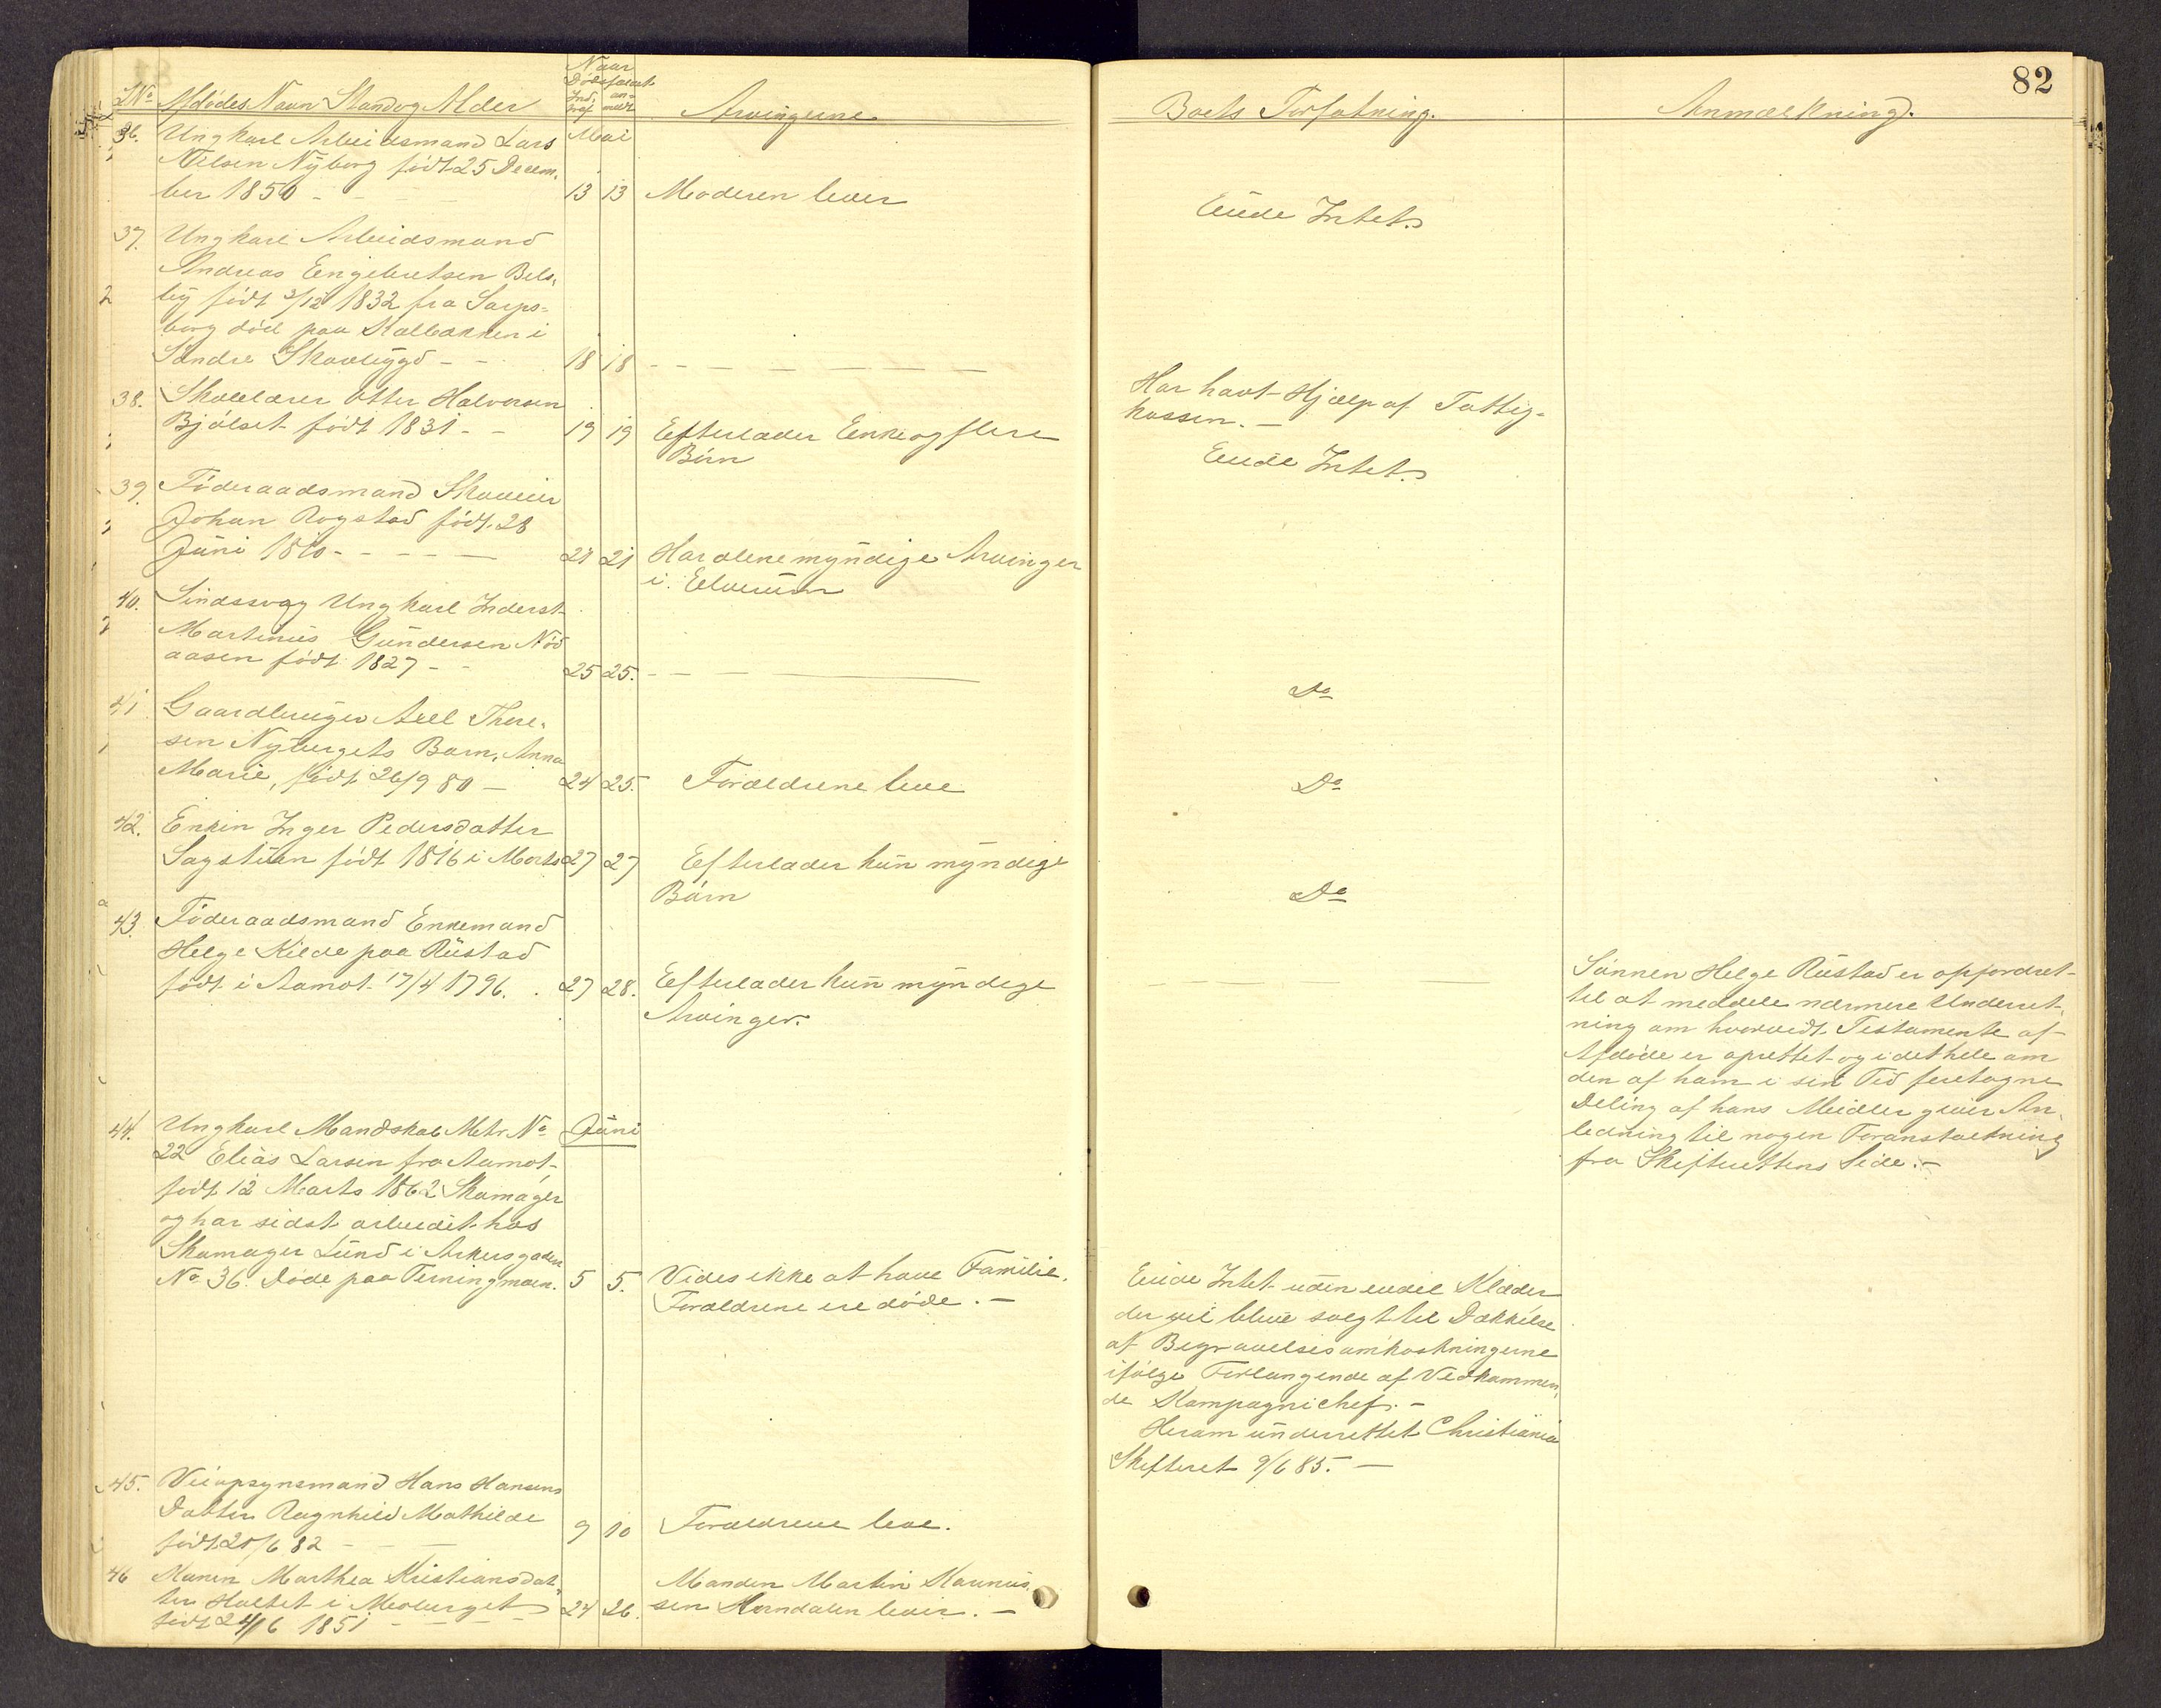 82
No Afdødes Navn Stand og Alder
Naar
Dødsfaldet
Ind-
traf
an-
meldt
Arvingerne
Boets Forfatning.
Anmærkning.
36. Ungkarl Arbeidsmand Lars
Nilsen Nyborg født 25 Decem-
ber 1850 - - -
Mai
13 13 Moderen lever
Eiede Intet.
37. Ungkarl Arbeidsmand
Andreas Engebretsen Bels-
by født 3/12 1832 fra Sarps-
borg død paa Kalbakken i
Søndre Skovbygd - -
18 18 - - - - - -
Har havt Hjælp af Fattig-
kassen. -
38. Skolelærer Otter Halvorsen
Bjølset født 1831 - -
19 19 Efterlader Enke og flere
Børn
Eiede Intet.
39. Føderaadsmand Skoveier
Johan Rogstad født 28
Juni 1810 - - - -
21 21 Har alene myndige Arvinger
i Elverum
40. Sindssvag Ungkarl Inderst
Martinus Gundersen Nød
aasen født 1827 - -
25 25. - - -
Do
41 Gaardbruger Axel There-
sen Nybergets Barn, Anna
Marie, født 26/9 80 -
24 25. Forældrene leve
Do
42. Enken Inger Pedersdatter
Sagstuen født 1816 i Marts
27 27 Efterlader kun myndige
Børn
Do
43. Føderaadsmand Enkemand
Helge Kilde paa Rustad
født i Aamot 17/4 1796.
27 28. Efterlader kun myndige
Arvinger.
- - - -
Sønnen Helge Rustad er opfordret
til at meddele nærmere Underret-
ning om hvorvidt Testamente af
Afdøde er oprettet og i det hele om
den af ham i sin Tid foretagne
Deling af hans Midler giver An-
ledning til nogen Foranstaltning
fra Skifterettens Side. -
44. Ungkarl Mandskab Mtr. No
22 Elias Larsen fra Aamot
født 12 Marts 1862 Skomager
og har sidst arbeidet hos
Skomager Lund i Akersgaden
No 36. Døde paa Terningmoen.
Juni
5 5. Vides ikke at have Familie.
Forældrene ere døde. -
Eiede Intet uden endel Klæder
der vil blive solgt til Dækkelse
af Begravelsesomkostningerne
ifølge Forlangende af Vedkommen-
de Kompagnichef. -
Herom underrettet Christiania
Skifteret 9/6 85. -
45. Veiopsynsmand Hans Hansens
Datter Ragnhild Mathilde
født 20/6 82 - -
9 10 Forældrene leve.
46 Konen Marthea Kristiansdat-
ter Holtet i
født 24/6 1851 - - -
24 26. Manden Martin
sen Korndalen lever. -